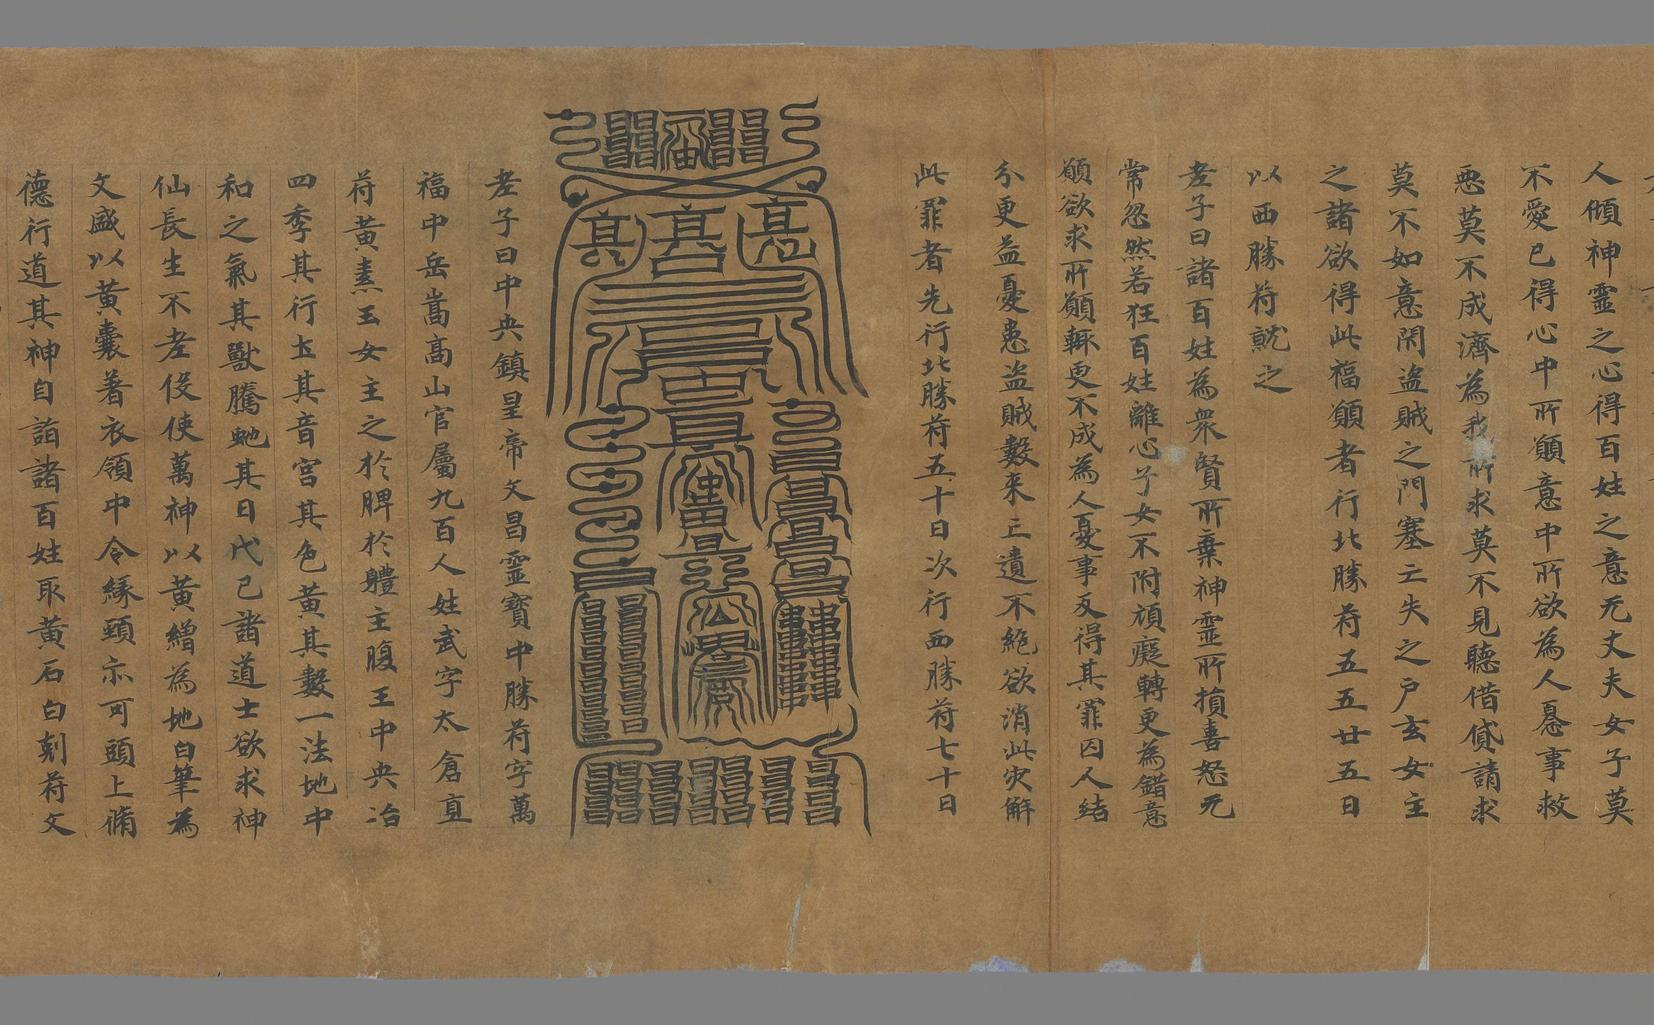 人傾神靈之心得百姓之意无丈夫女子莫
不愛已得心中所願意中所欲為人憙事救
惡莫不成濟為我所求莫不見聽借貸請求
莫不如意閇盜賊之門塞亡失之户玄女主
之諸欲得此福願者行北勝苻五五廿五日
以西勝苻就之
老子曰諸百姓為衆賢所棄神靈所損喜怒无
常忽然若狂百姓離心子女不附頑癡轉更為錯意
願欲求所願輒更不成為人憂事反得其罪囚人結
尒更益憂患盜賊數来亡遺不絕欲消此灾解
此罪者先行北勝苻五十日次行西勝苻七十日
老子曰中央鎮星帝文昌靈寶中勝苻字萬
福中岳嵩高山官屬九百人姓武字太倉直
苻黃素玉女主之於脾於軆主腹王中央治
四季其行土其音宮其色黃其數一法地中
和之氣其獸騰虵其日戊己諸道士欲求神
仙長生不老役使萬神以黃繒為地白筆為
文盛以黃囊著衣領中令緣頸亦可頭上脩
德行道其神自詣諸百姓取黃石白刻苻文